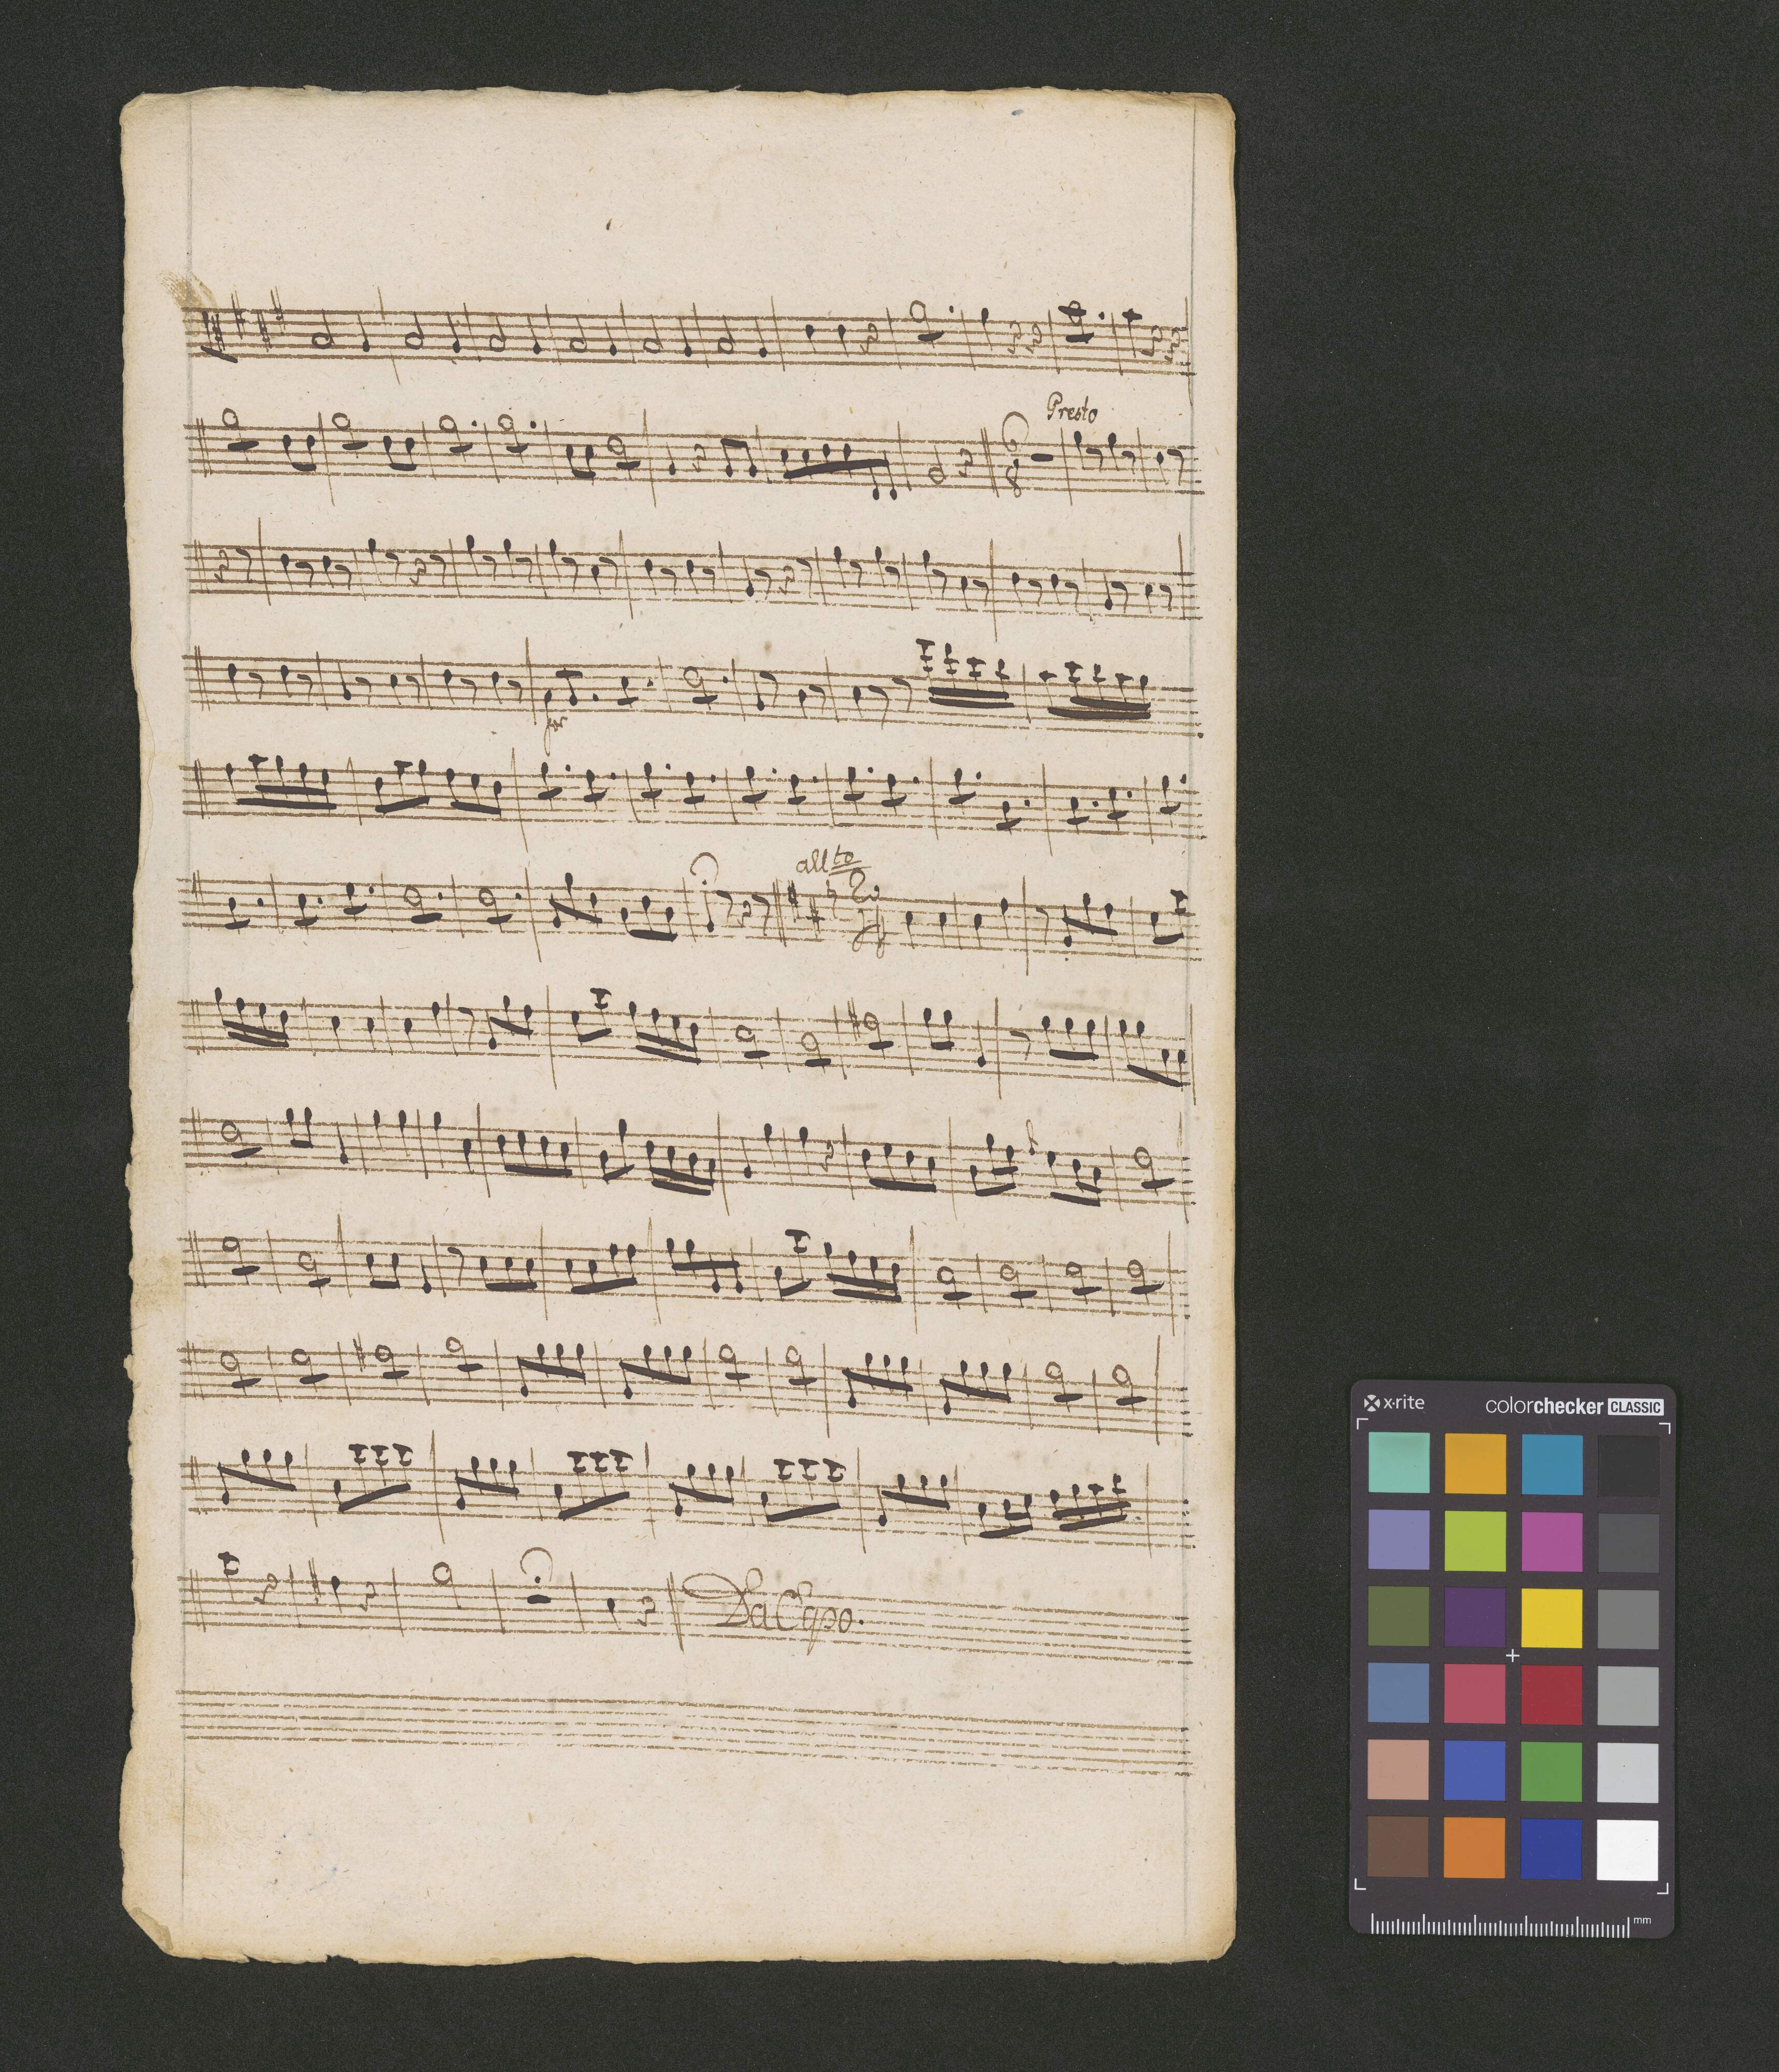 Presto
6
8
for
all.to
2
4
Da Capo.
x-rite
colorchecker CLASSIC
mm